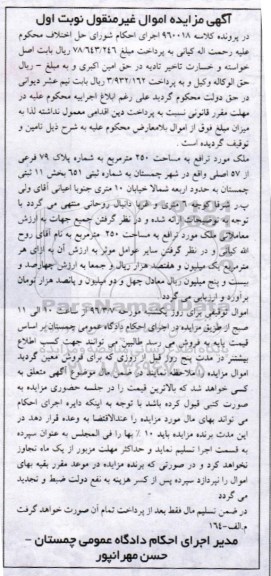 آگهی مزایده اموال غیرمنقول نوبت اول
در پرونده کلاسه ۹۶۰۰۱۸ اجرای احکام شورای حل اختلاف محکوم
علیه رحمت اله کیانی به پرداخت مبلغ ۷۸/۶۴۳/۲۴۶ ریال بابت اصل
خواسته و خسارت تاخیر تادیه در حق امین اکبری و به مبلغ - ریال
حق الوکاله وکیل و به پرداخت ۳/۹۳۲/۱۶۲ ریال بابت نیم عشر دیوانی
در حق دولت محکوم گردید علی رغم ابلاغ اجراییه محکوم علیه در
مهلت مقرر قانونی نسبت به پرداخت دین اقدامی معمول نداشته لذا به
میزان مبلغ فوق از اموال بلامعارض محکوم علیه به شرح ذیل تامین و
توقیف گردیده است .
ملک مورد ترافع به مساحت ۲۵۰ مترمربع به شماره پلاک ۷۹ فرعی
از ۵۷ اصلی واقع در شهر چمستان به شماره ثبتی ۶۵۱ بخش ۱۱ ثبتی
چمستان به حدود اربعه شمالا خیابان ۱۰ متری جنوبا اعیانی آقای ولی
پ ر شرقا کوچه ۶ متری و غربا دانیال روحانی منتهی می گردد با
توجه به توضیحات ارائه شده و در نظر گرفتن جمیع جهات به ارزش
معاملاتی ملک مورد ترافع به مساحت ۲۵۰ مترمربع به نام آقای روح
الله کیانی و در نظر گرفتن سایر عوامل موثر به ارزش آن به ازای هر
مترمربع یک میلیون و هفتصد هزار ریال و جمعا به ارزش چهارصد و
بیست و پنج میلیون ریال معادل چهل و دو میلیون و پانصد هزار تومان
برآورد و ارزیابی می گردد
اموال توقیفی برای روز یکشنبه مورخه ۹۶/۳/۷ از ساعت ۱۰ الی ۱۱
صبح از طریق مزایده در اجرای احکام دادگاه عمومی چمستان بر اساس
قیمت پایه به فروش می رسد طالبین می توانند جهت کسب اطلاع
بیشتر در مدت پنج روز قبل از روزی که برای فروش معین گردید
اموال مزایده را ملاحظه نمایند ضمنا مال موضوع آگهی متعلق به
کسی خواهد شد که بالاترین قیمت را در جلسه حضوری مزایده به
صورت کتبی قبول کرده باشد با توجه به اینکه دایره اجرای احکام
می تواند بهای مال مورد مزایده را عندالاقتضا به وعده قرار دهد در
این مدت برنده مزایده باید ۱۰ ٪ بها را فی المجلس به عنوان سپرده
به قسمت اجرا تسلیم نماید و حداکثر مهلت مزبور از یک ماه تجاوز
نخواهد کرد و در صورتی که برنده مزایده در موعد مقرر بقیه بهای
اموال را نپردازد سپرده پس از کسر هزینه به نفع دولت ضبط و تجدید
می گردد
در ضمن تسلیم مال فقط بعد از پرداخت تمام آن صورت خواهد گرفت
م.الف-۱۶۴
مدیر اجرای احکام دادگاه عمومی چمستان -
حسن مهرانپور